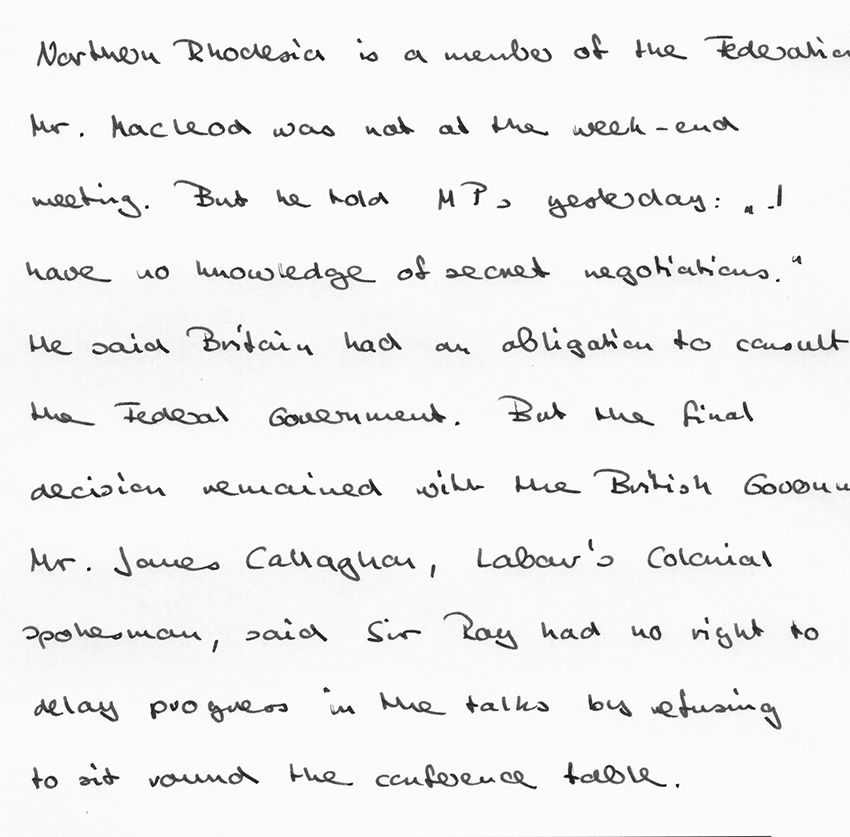 Northern Rhodesia is a member of the Federation
Mr. Macleod was not at the week-end
meeting. But he told MPs yesterday: "I
have no knowledge of secret negotiations."
He said Britain had an obligation to consult
the Federal Government. But the final
decision remained with the British Governm
Mr. James Callaghan, Labour's Colonial
spokesman, said Sir Roy had no right to
delay progress in the talks by refusing
to sit round the conference table.